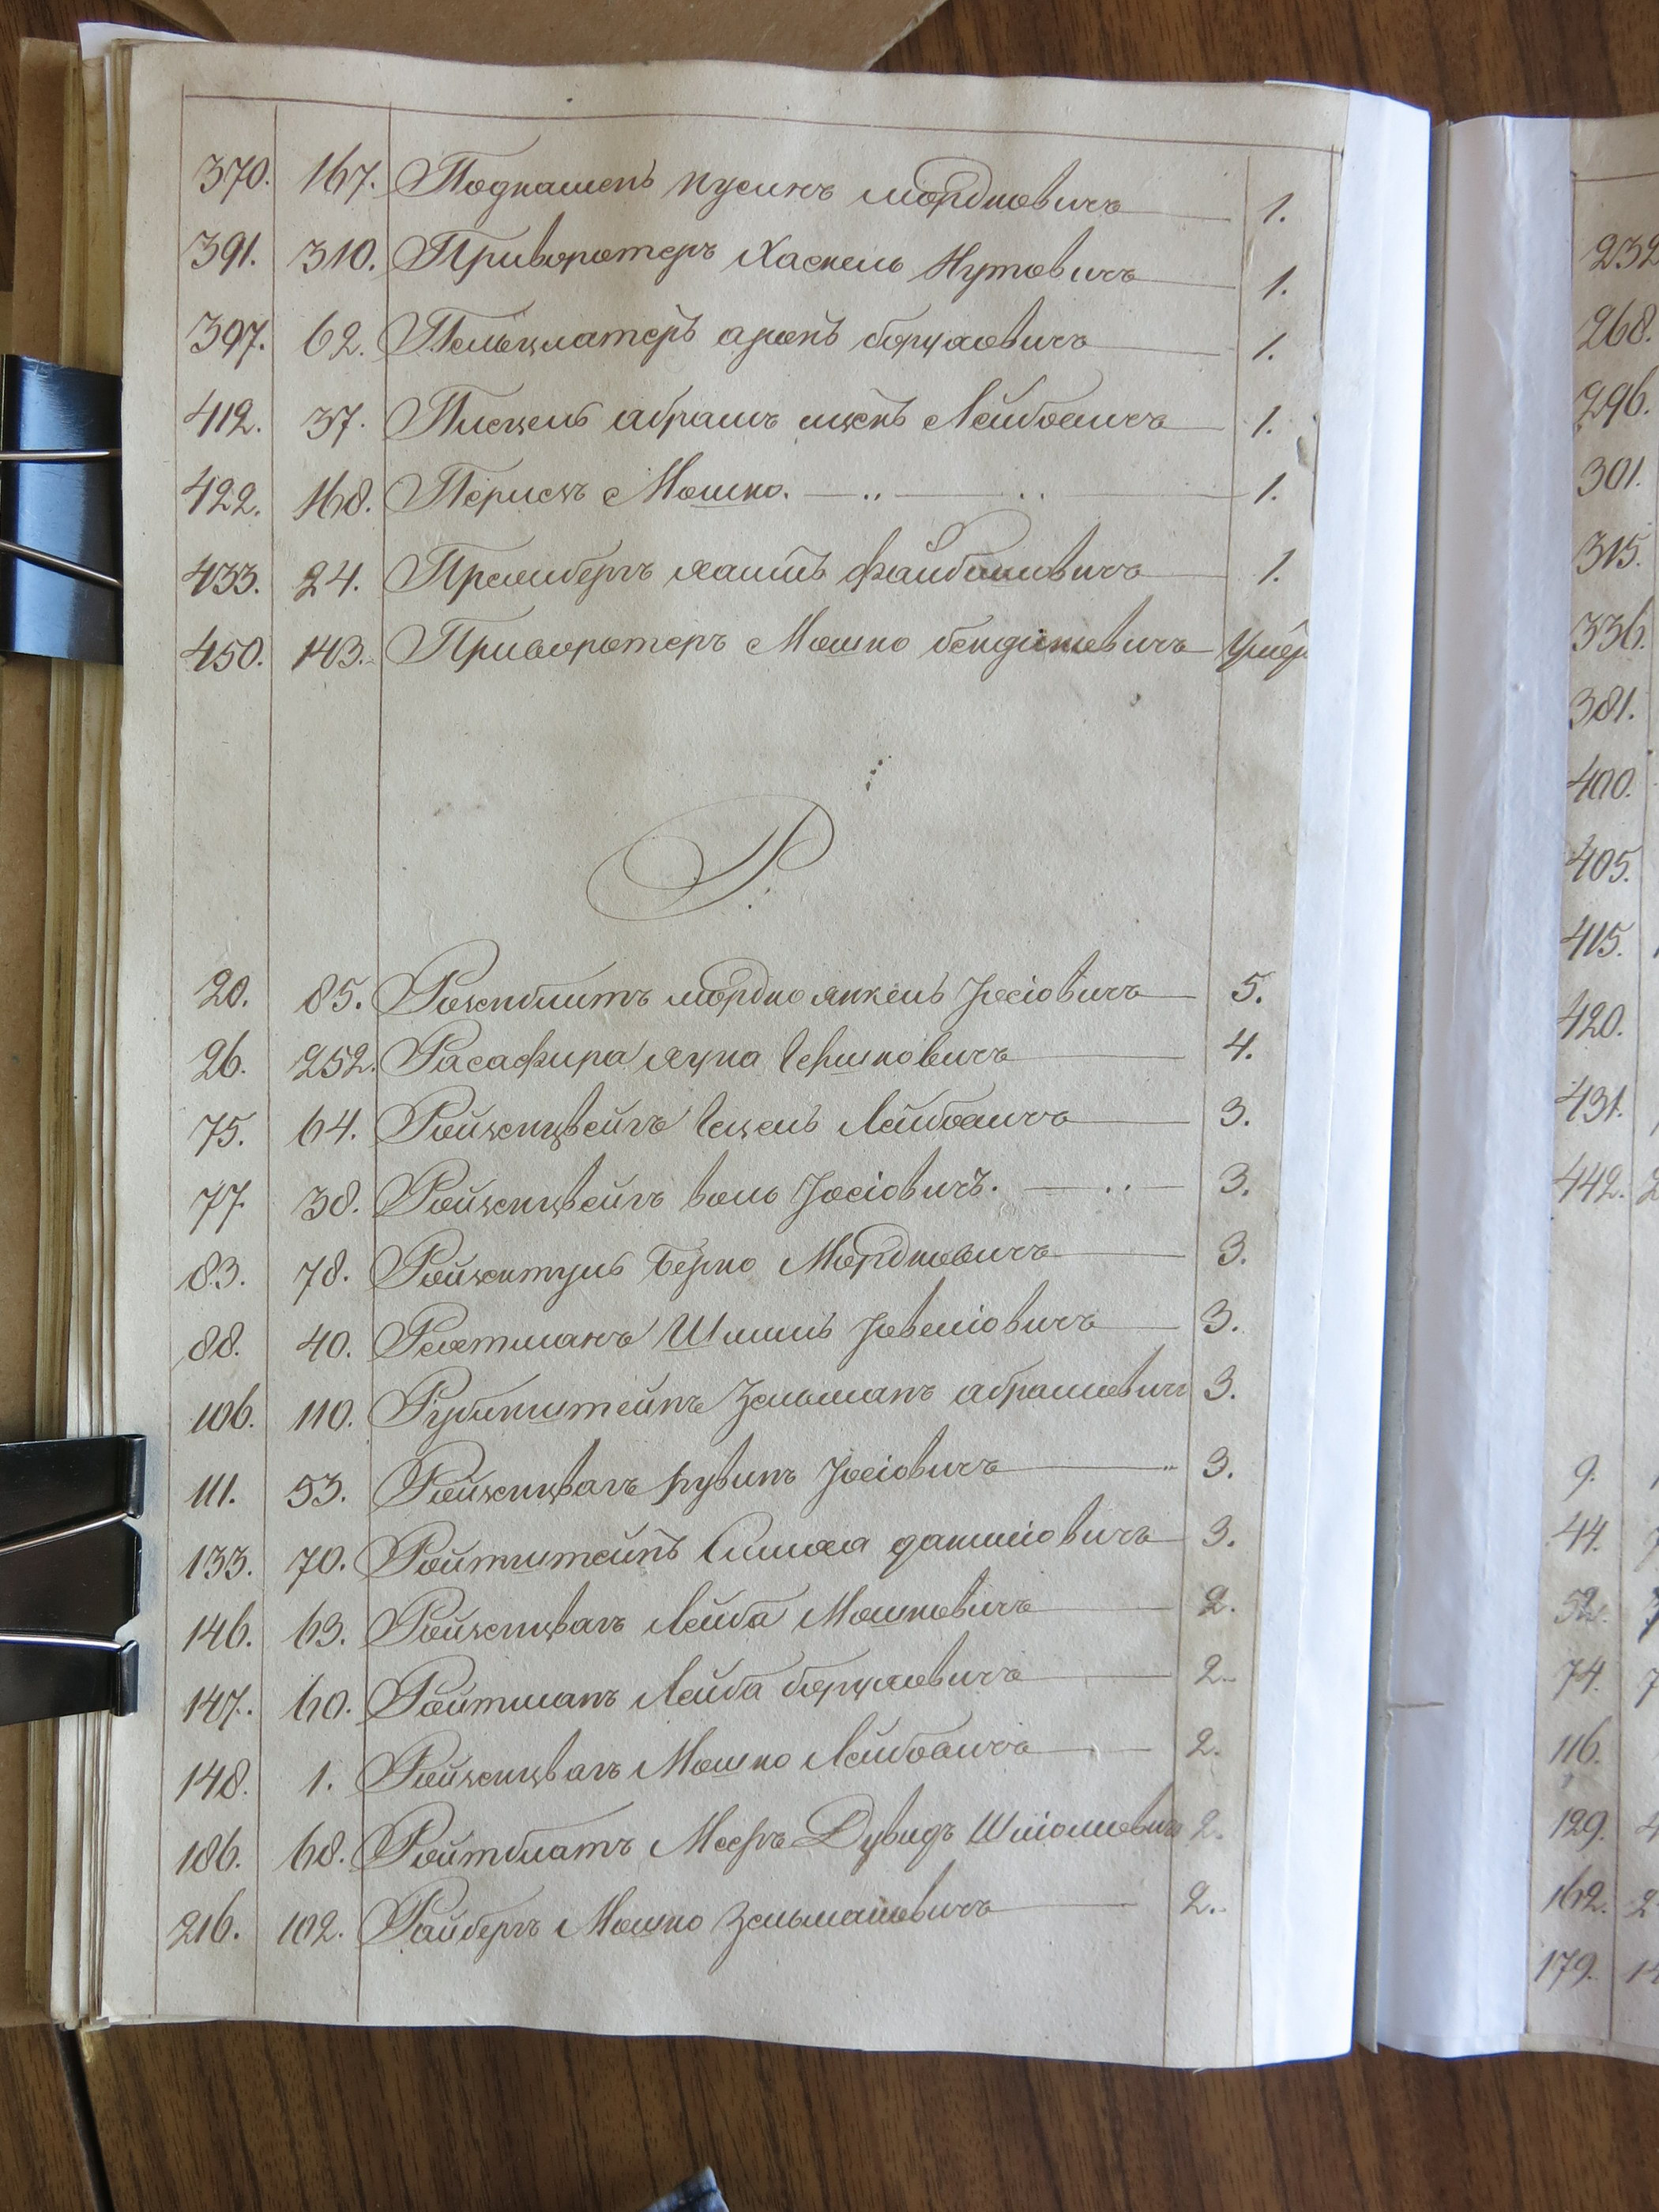 370. 167. Подкаменъ Нусинъ Мордковичъ 1.
391. 310. Приворотеръ Хаскель Нутовичъ 1.
397. 62. Пельцматеръ аронъ боруховичъ 1.
412. 37. абрамъ Лейбовичъ 1.
422. 168. Мошко. 1.
433. 24. хаимъ файбишовичъ 1.
450. 143. Приворотеръ Мошко бендитовичъ
Р.
20. 85. Розенблитъ мордко янкель Іосіовичъ 5.
26. 252. Расафира хуна Гершковичъ 4.
75. 64. Ройзенцвейгъ Гецель Лейбовичъ 3.
77. 38. Ройзенцвейгъ волъ Іосіовичъ. 3.
83. 78. Ройзентулъ Берко Мордковичъ 3.
88. 40. Шмиль 3.
106. 110. Рубинштейнъ Зельманъ абрамовичъ 3.
111. 53. Ройзенцвагъ рувинъ Іосіовичъ 3.
133. 70. Ройтштейнъ Симха даниліовичъ 3.
146. 63. Ройзенцвагъ Лейба Мошковичъ 2.
147. 60. Ройтманъ Лейба боруховичъ 2.
148. 1. Ройзенцвагъ Мошко Лейбовичъ 2.
186. 68. Ройтблатъ Мееръ Дувидъ Шліомовичъ 2.
216. 102. Райбергъ Мошко Зельмановичъ 2.
232
268.
296.
301.
315.
336.
381.
400.
405.
415.
420.
431.
442.
9.
44.
52.
74.
116.
129.
162.
179.